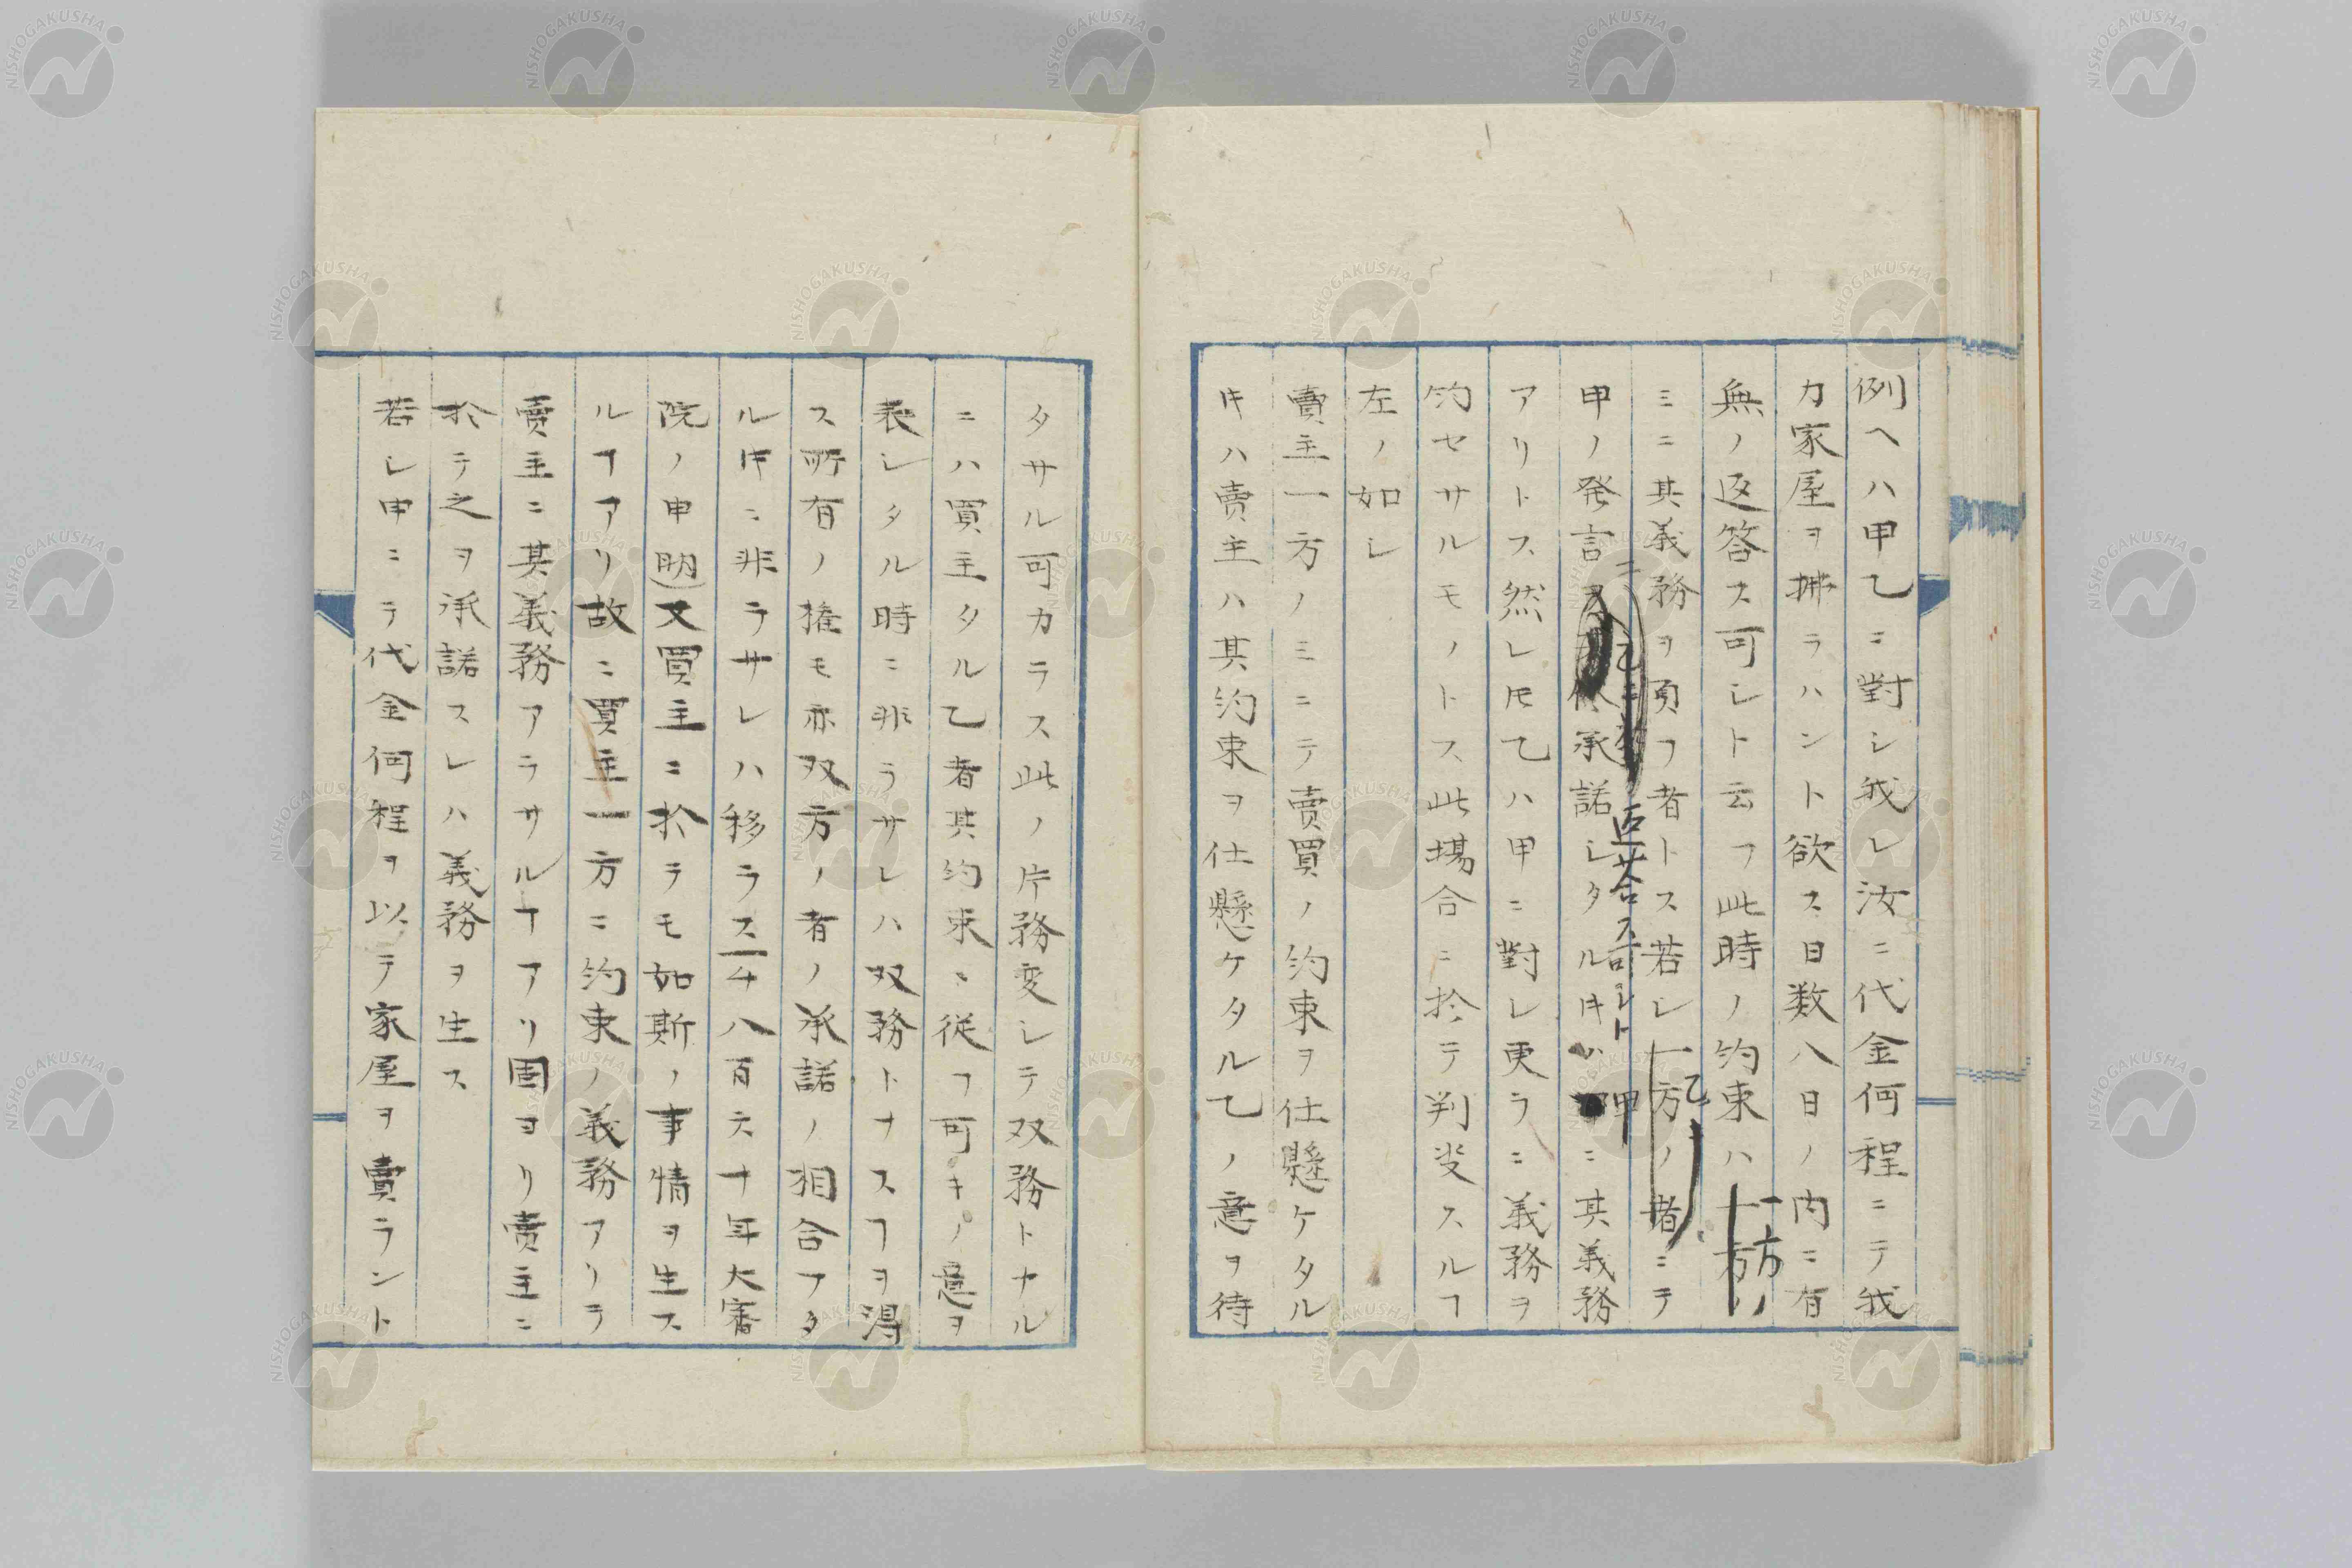 例ヘハ甲乙ニ對シ我レ汝ニ代金何程ニテ我
カ家屋ヲ拂ラハント欲ス日数八日ノ内ニ有
無ノ返答ス可シト云フ此時ノ約束ハ一方ノ
ミニ其義務ヲ負フ者トス若シ乙ニテ
甲ノ発言ニ返荅ス可シト承諾シタルキハ甲ニ其義務
アリトス然レ𪜈乙ハ甲ニ對シ更ラニ義務ヲ
約セサルモノトス此場合ニ於テ判决スルヿ
左ノ如シ
賣主一方ノミニテ賣買ノ約束ヲ仕懸ケタル
キハ賣主ハ其約束ヲ仕懸ケタル乙ノ意ヲ待
タサル可カラス此ノ片務変シテ双務トナル
ニハ買主タル乙者其約束ニ従フ可キノ意ヲ
表シタル時ニ非ラサレハ双務トナスヿヲ得
ス所有ノ権モ亦双方ノ者ノ承諾ノ相合フタ
ルキニ非ラサレハ移ラス千八百六十年大審
院ノ申明又買主ニ於ラモ如斯ノ事情ヲ生ス
ルヿアリ故ニ買主一方ニ約束ノ義務アリテ
賣主ニ其義務アラサルヿアリ固ヨリ賣主ニ
於テ之ヲ承諾スレハ義務ヲ生ス
若シ申ニテ代金何程ヲ以テ家屋ヲ賣ラント
NISHOGAKUSHA